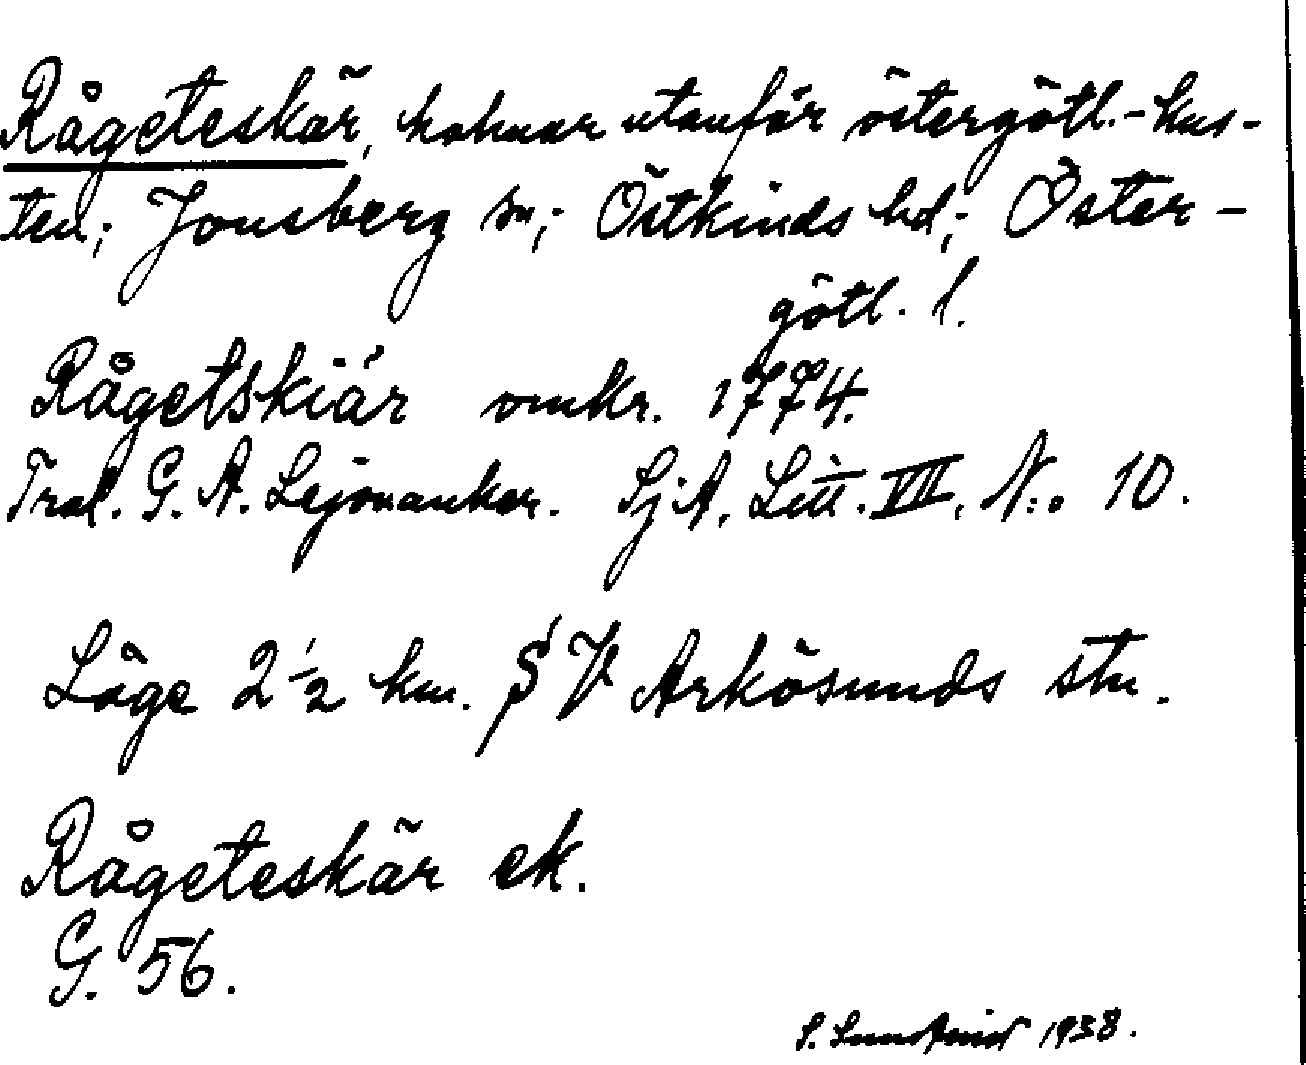 Rågeteskär, holmar utanför östergötl.-kus-
ten; Jonsberg sn; Östkinds hd; Öster-
götl. l.
Rågetskiär omkr. 1774.
Tral. G. A. Lejonankar. Sj.A. Litt. VII, N:o 10.
Läge 2½ km. SV Arkösunds stn.
Rågeteskär ek.
G. 56.
S. 1938.